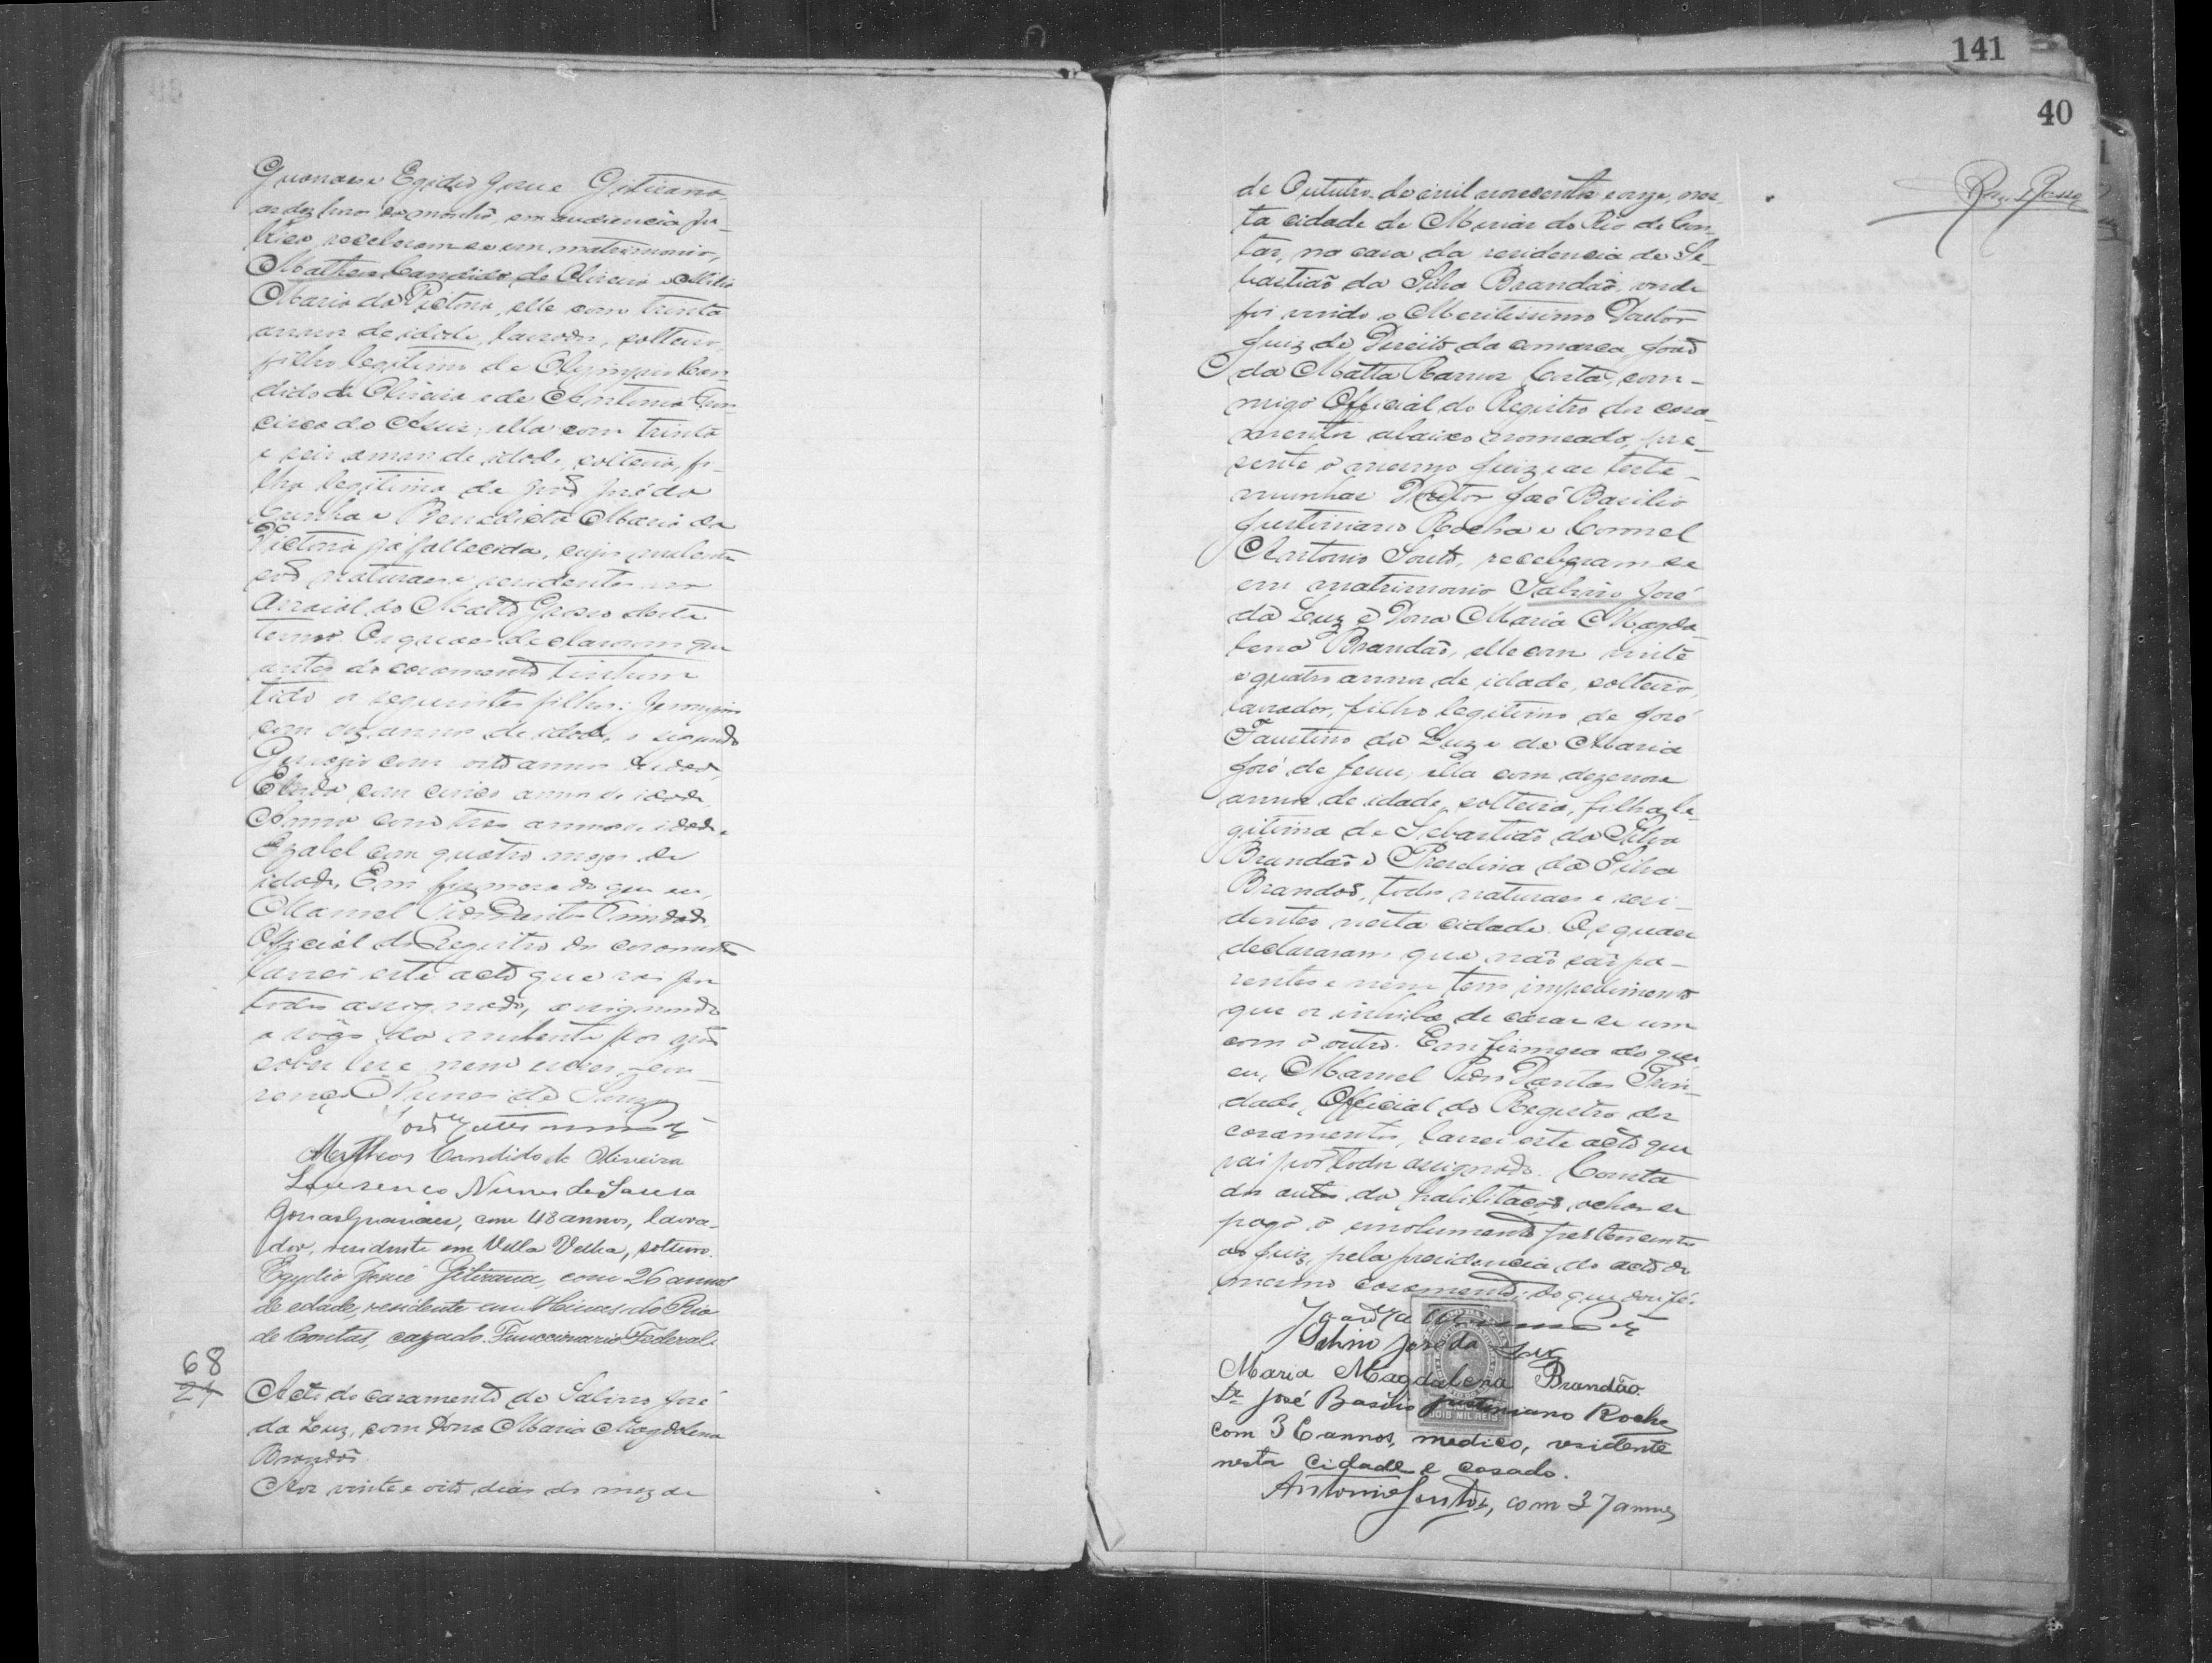 Guanaes e Egidio José Gitirana
as dez horas da manhã, em audiencia pu-
blica, receberam-se em matrimonio,
Matheos Candido de Oliveira e
Maria da Victoria, elle com trinta
annos de idade, lavrador, solteiro,
filho legitimo de Olympio Can-
dido de Oliveira e de Antonia Fran-
cisca de Jesus; ella com trinta
e seis annos de idade, solteira, fi-
lha legitima de José da
Cunha e Benedicta Maria da
Victoria já fallecida, cujos nubentes
são naturaes e residentes no
Arraial do Matto Grosso deste
termo. Os quaes declararam que
antes do casamento tinham
tido os seguintes filhos:
com dez annos de idade, o segundo
com oito annos de idade,
com cinco annos de idade
com tres annos de idade e
Ezabel com quatro mezes de
idade. Em firmeza do que eu,
Manoel Pires Dantas Trindade
Official do Registro dos casamentos
lavrei este acto que vai por
todos assignado, assignando
a rogo da nubente por não
saber ler e nem escrever, Lou-
renço Nunes de Souza
Matheos Candido de Oliveira
Lourenço Nunes de Sousa
Jonas Guanaes, com 48 annos, lavra-
dor, residente em Villa Velha, solteiro.
Egydio José Gitirana, com 26 annos
de edade, residente em Minas do Rio
de Contas, cazado. Funccionario Federal.
68
27
Acto do casamento de Salino José
da Luz, com Dona Maria Magdalena
Brandão
Aos vinte e oito dias do mez de
141
40
de Outubro de mil novecentos e onze, nes-
ta cidade de Minas do Rio de Con-
tas, na casa da residencia de Se-
bastião da Silva Brandão, onde
foi vindo o Meritissimo Doutor
Juiz de Direito da comarca João
da Matta Ramos Costa, com-
migo Official do Registro dos casa-
mentos abaixo nomeado, pre-
sente o mesmo Juiz e as teste-
munhas Doutor José Basilio
Justiniano Rocha e Coronel
Antonio Souto, receberam-se
em matrimonio Salino José
da Luz e Dona Maria Magda-
lena Brandão, elle com vinte
e quatro annos de idade, solteiro,
lavrador, filho legitimo de José
Faustino da Luz e de Maria
José de Jesus; ella com dezenove
annos de idade, solteira, filha le-
gitima de Sebastião da Silva
Brandão e da Silva
Brandão, todos naturaes e resi-
dentes nesta cidade. Os quaes
declararam que não são pa-
rentes e nem tem impedimento
que os inhiba de casar-se um
com o outro. Em firmeza do que
eu, Manoel Pires Dantas Trin-
dade, Official do Registro dos
casamentos, lavrei este acto que
vai por todos assignado. Consta
dos autos da habilitação, achar-se
pago o emolumento pertencente
ao Juiz, pela presidencia do acto do
mesmo casamento; do que dou fé.
Salino José da Luz
Maria Magdalena Brandão
Dr José Basilio Justiniano Rocha
com 36 annos, medico, residente
nesta cidade e casado.
Antonio Souto, com 37 annos
DOIS MIL REIS